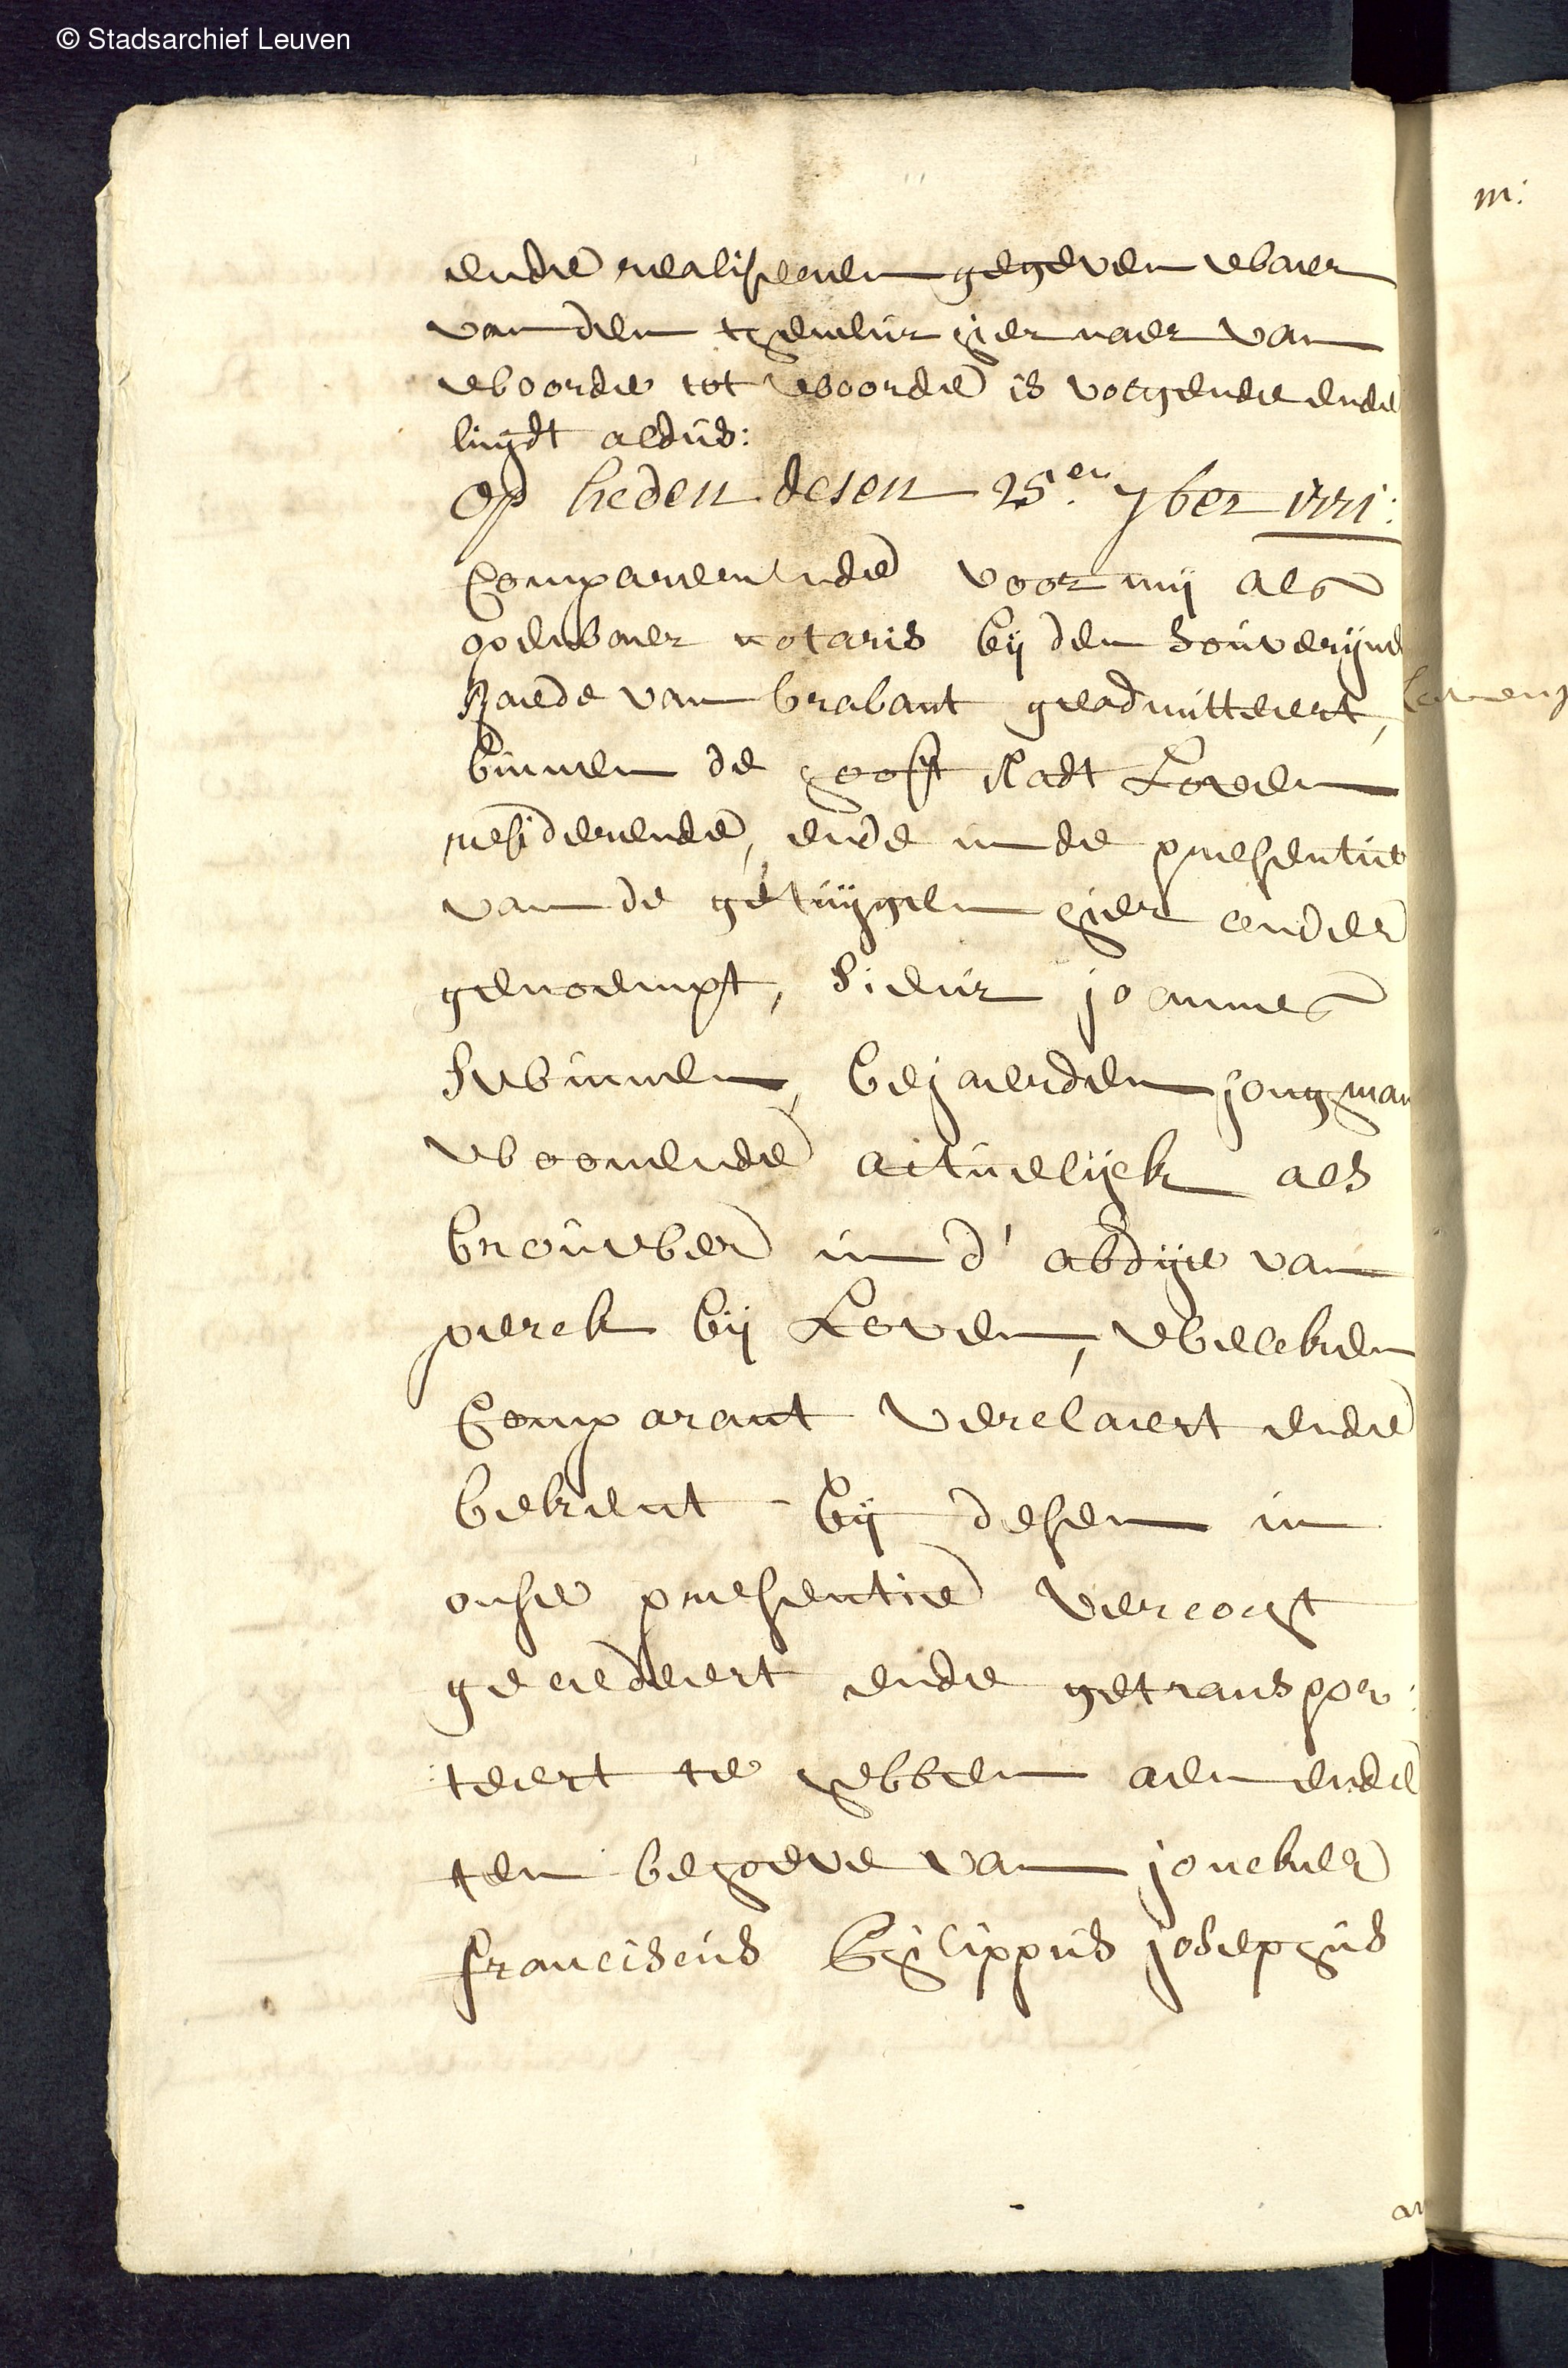 © Stadsarchief Leuven
m:
ende realiseren gegeven waer
van den theneur hier naer van
woorde tot woorde is volgende ende
luydt aldus:
Op heden desen 25.en 7ber 1771:
Comparerende voor mij als
openbaer notaris bij den souverijne
Raede van brabant geadmitteert,
binnen de hooft stadt Loven
residerende, ende in de presentie
van de getuijgen hier onder
genoempt, Sieur joannes
Swinnen, bejaerden jongman
woonende actuelijck als
brouwer in d' abdije van
perck bij Loven, welcken
Comparant verclaert ende
bekent bij desen in
onse presentie vercoght
gecedeert ende getranspor:
:teert te hebben aen ende
ten behoeve van joncker
franciscus Philippus josephus